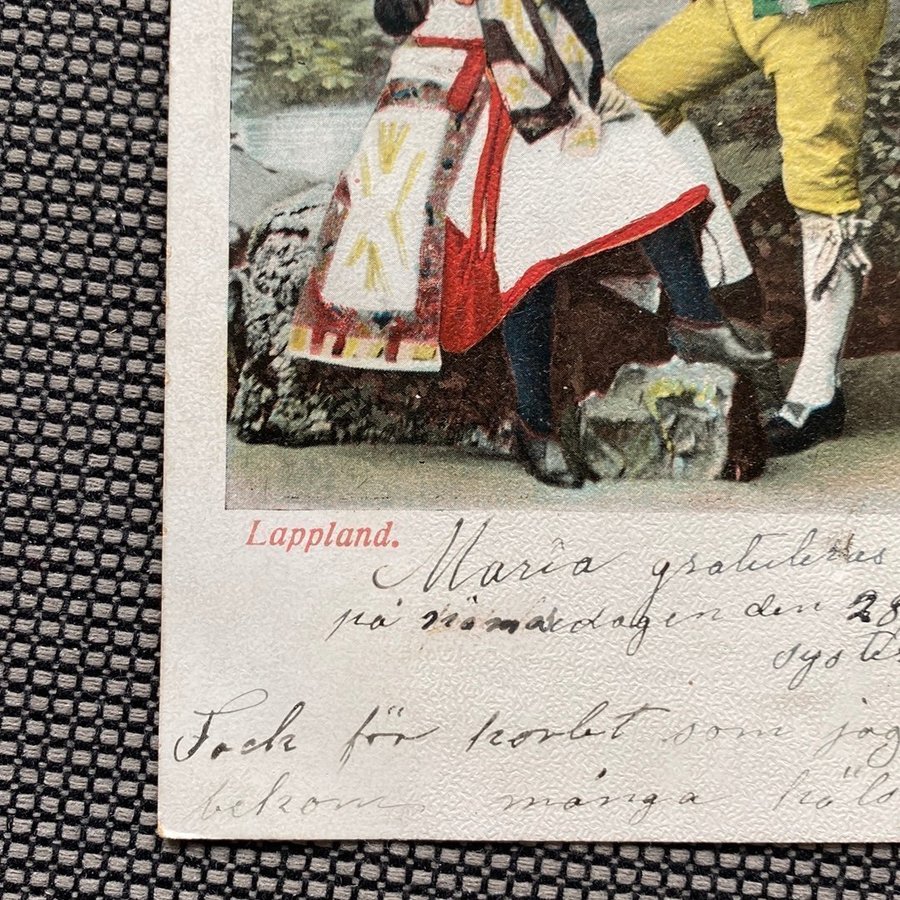 Lappland.
Maria gratuleras
på dagen den 28
syste
Tack för kortet som jag
bekom många häls